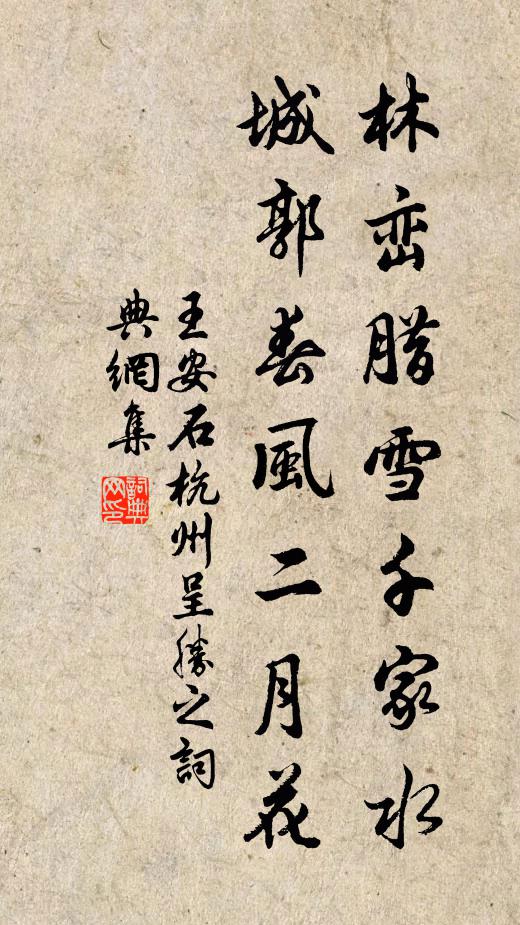 林峦腊雪千家水
城郭春風二月花
王安石杭州呈勝之詞
典網集
詞典網印